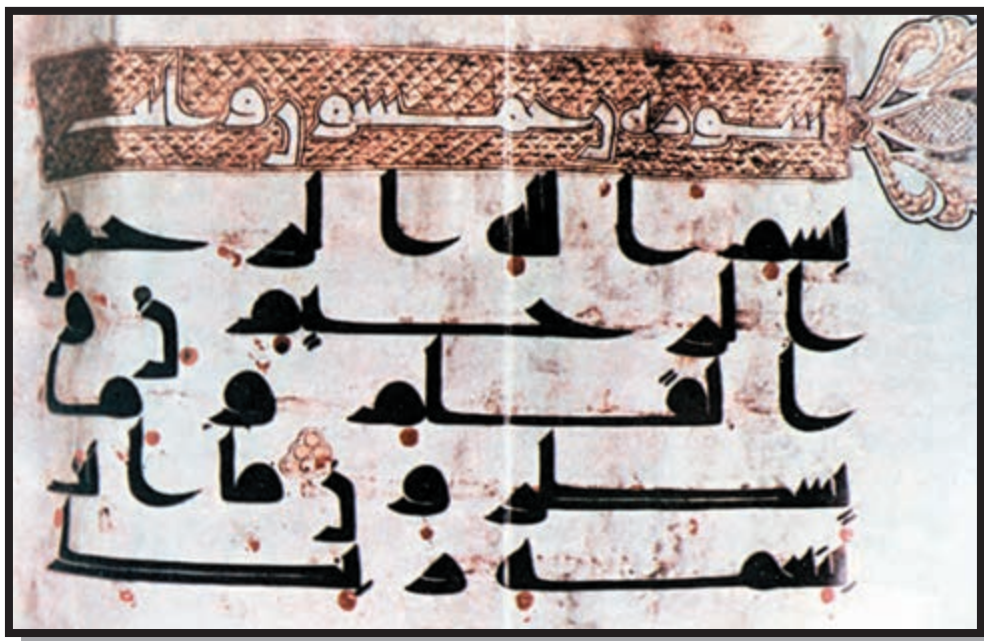 سوره ن خمسون
بسم الله الرحمن
الرحيم ن و
القلم و ما
يسطرون ما انت
بنعمه ربك